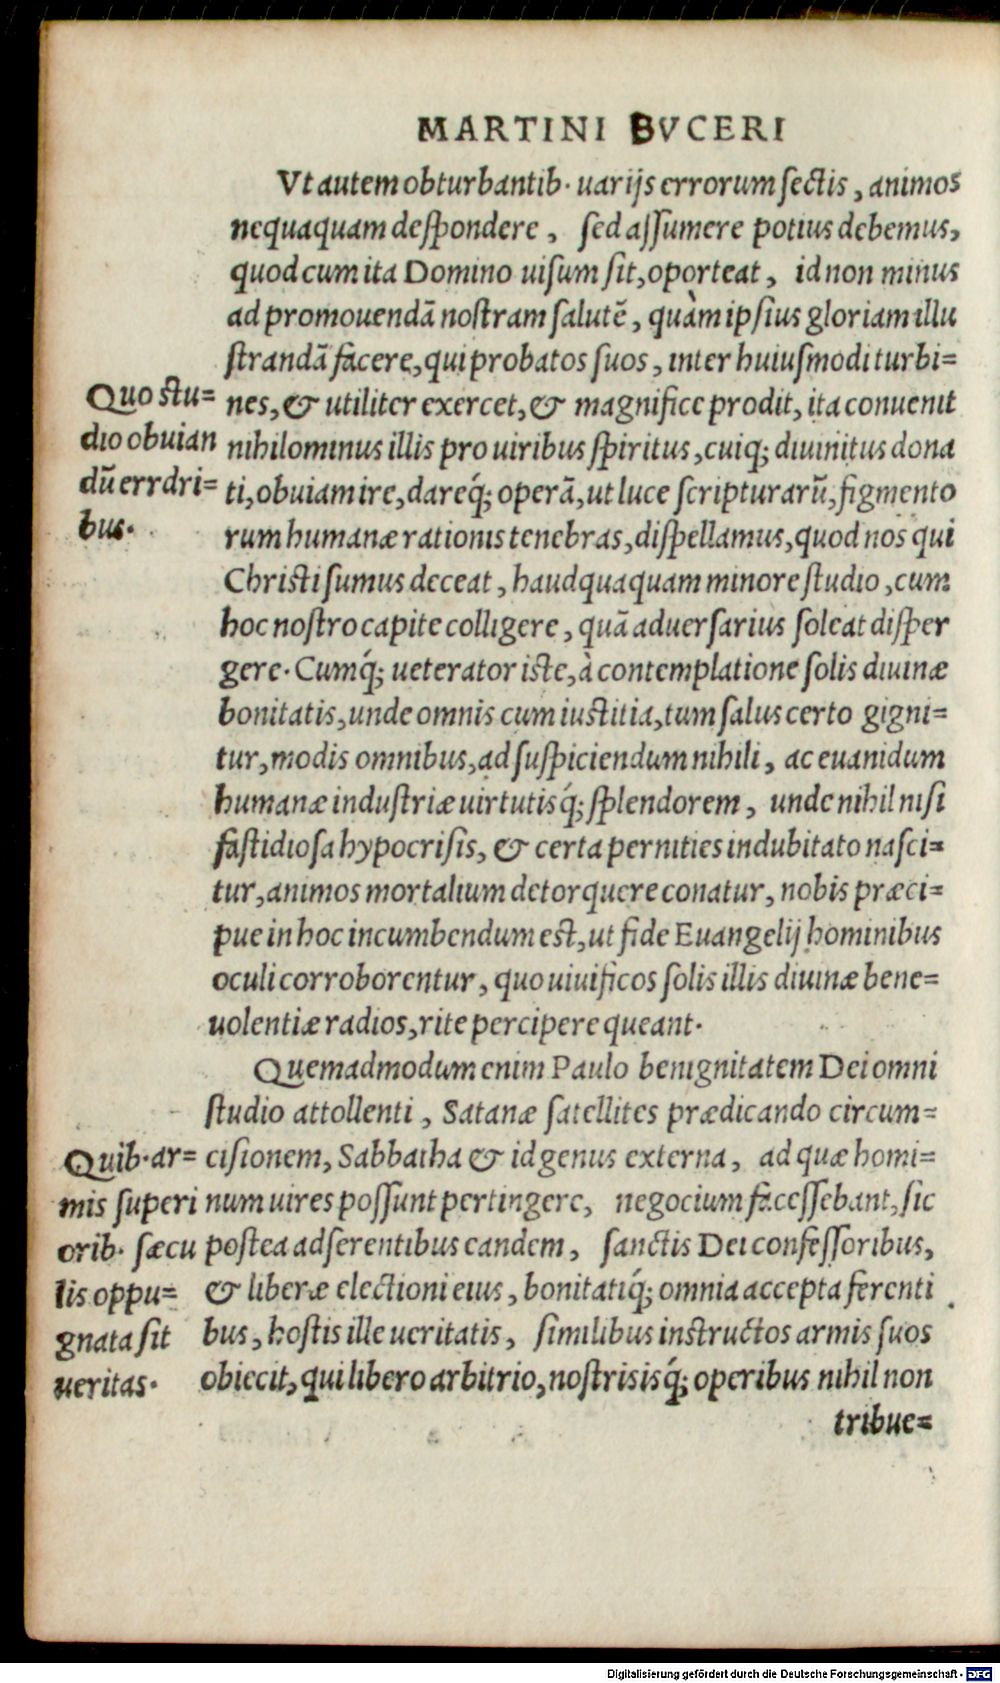 MARTINI BVCERI
Vt autem obturbantib. uarijs errorum ſectis, animos
nequaquam deſpondere, ſed aſſumere potius debemus,
quod cum ita Domino uiſum ſit, oporteat, id non minus
ad promouendã noſtram ſalutẽ, quàm ipſius gloriam illu
ſtrandã facere, qui probatos ſuos, inter huiuſmodi turbi=
nes, & utiliter exercet, & magnifice prodit, ita conuenit
nihilominus illis pro uiribus ſpiritus, cuiq; diuinitus dona
ti, obuiam ire, dareq́; operã, ut luce ſcripturarũ, figmento
rum humanæ rationis tenebras, diſpellamus, quod nos qui
Chriſti ſumus deceat, haudquaquam minore ſtudio, cum
hoc noſtro capite colligere, quã aduerſarius ſoleat diſper
gere. Cumq́; ueterator iſte, à contemplatione ſolis diuinæ
bonitatis, unde omnis cum iuſtitia, tum ſalus certo gigni=
tur, modis omnibus, ad ſuſpiciendum nihili, ac euanidum
humanæ induſtriæ uirtutisq́; ſplendorem, unde nihil niſi
faſtidioſa hypocriſis, & certa pernities indubitato naſci=
tur, animos mortalium detorquere conatur, nobis præci=
pue in hoc incumbendum eſt, ut fide Euangelij hominibus
oculi corroborentur, quo uiuificos ſolis illis diuinæ bene=
uolentiæ radios, rite percipere queant.
Quo ſtu=
dio obuian
dũ errori=
bus.
Quemadmodum enim Paulo benignitatem Dei omni
ſtudio attollenti, Satanæ ſatellites prædicando circum=
ciſionem, Sabbatha & id genus externa, ad quæ homi=
num uires poſſunt pertingere, negocium faceſſebant, ſic
poſtea adſerentibus eandem, ſanctis Dei confeſſoribus,
& liberæ electioni eius, bonitatiq́; omnia accepta ferenti
bus, hoſtis ille ueritatis, ſimilibus inſtructos armis ſuos
obiecit, qui libero arbitrio, noſtrisisq́; operibus nihil non
Quib. ar=
mis ſuperi
orib. ſæcu
lis oppu=
gnata ſit
ueritas.
tribue=
Digitalisierung gefördert durch die Deutsche Forschungsgemeinschaft - DFG